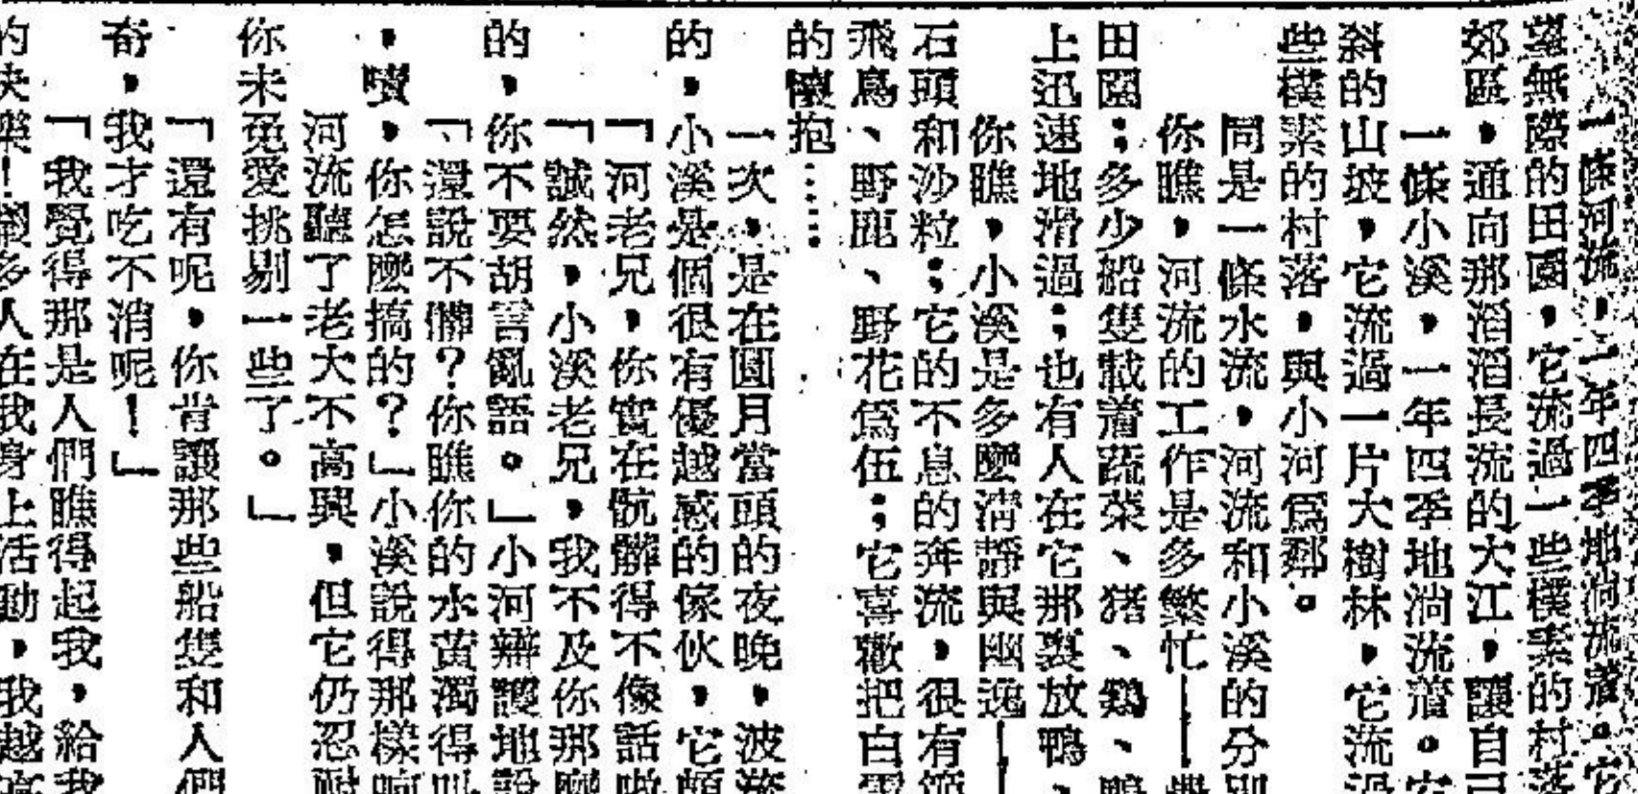 一條河流，一年四季地淌流着。它
無際的田園，它流過一些樸素的村落
郊區，通向那滔滔長流的大江，讓自己
一條小溪，一年四季地淌流着。它
斜的山坡，它流過一片大樹林，它流過
些樸素的村落，與小河爲鄰。
同是一條水流，河流和小溪的分別
你瞧，河流的工作是多繁忙——
田園；多少船隻載着蔬菜、猪、鷄、鴨
上迅速地滑過；也有人在它那裏放鴨、
你瞧，小溪是多麼清靜與幽逸——
石頭和沙粒；它的不息的奔流，很有節
飛鳥、野鹿、野花爲伍；它喜歡把白雲
的懷抱……
一次，是在圓月當頭的夜晚，波
的，小溪是個很有優越感的傢伙，它頗
「河老兄，你實在骯髒得不像話啦
「誠然，小溪老兄，我不及你那麼
的，你不要胡言亂語。」小河辯護地說
「還說不髒？你瞧你的水黃濁得叫
，嘖，你怎麼搞的？」小溪說得那樣响
河流聽了老大不高興，但它仍忍耐
你未免愛挑剔一些了。」
「還有呢，你肯讓那些船隻和人們
奇，我才吃不消呢！」
「我覺得那是人們瞧得起我，給我
的快樂！很多人在我身上活動，我越高